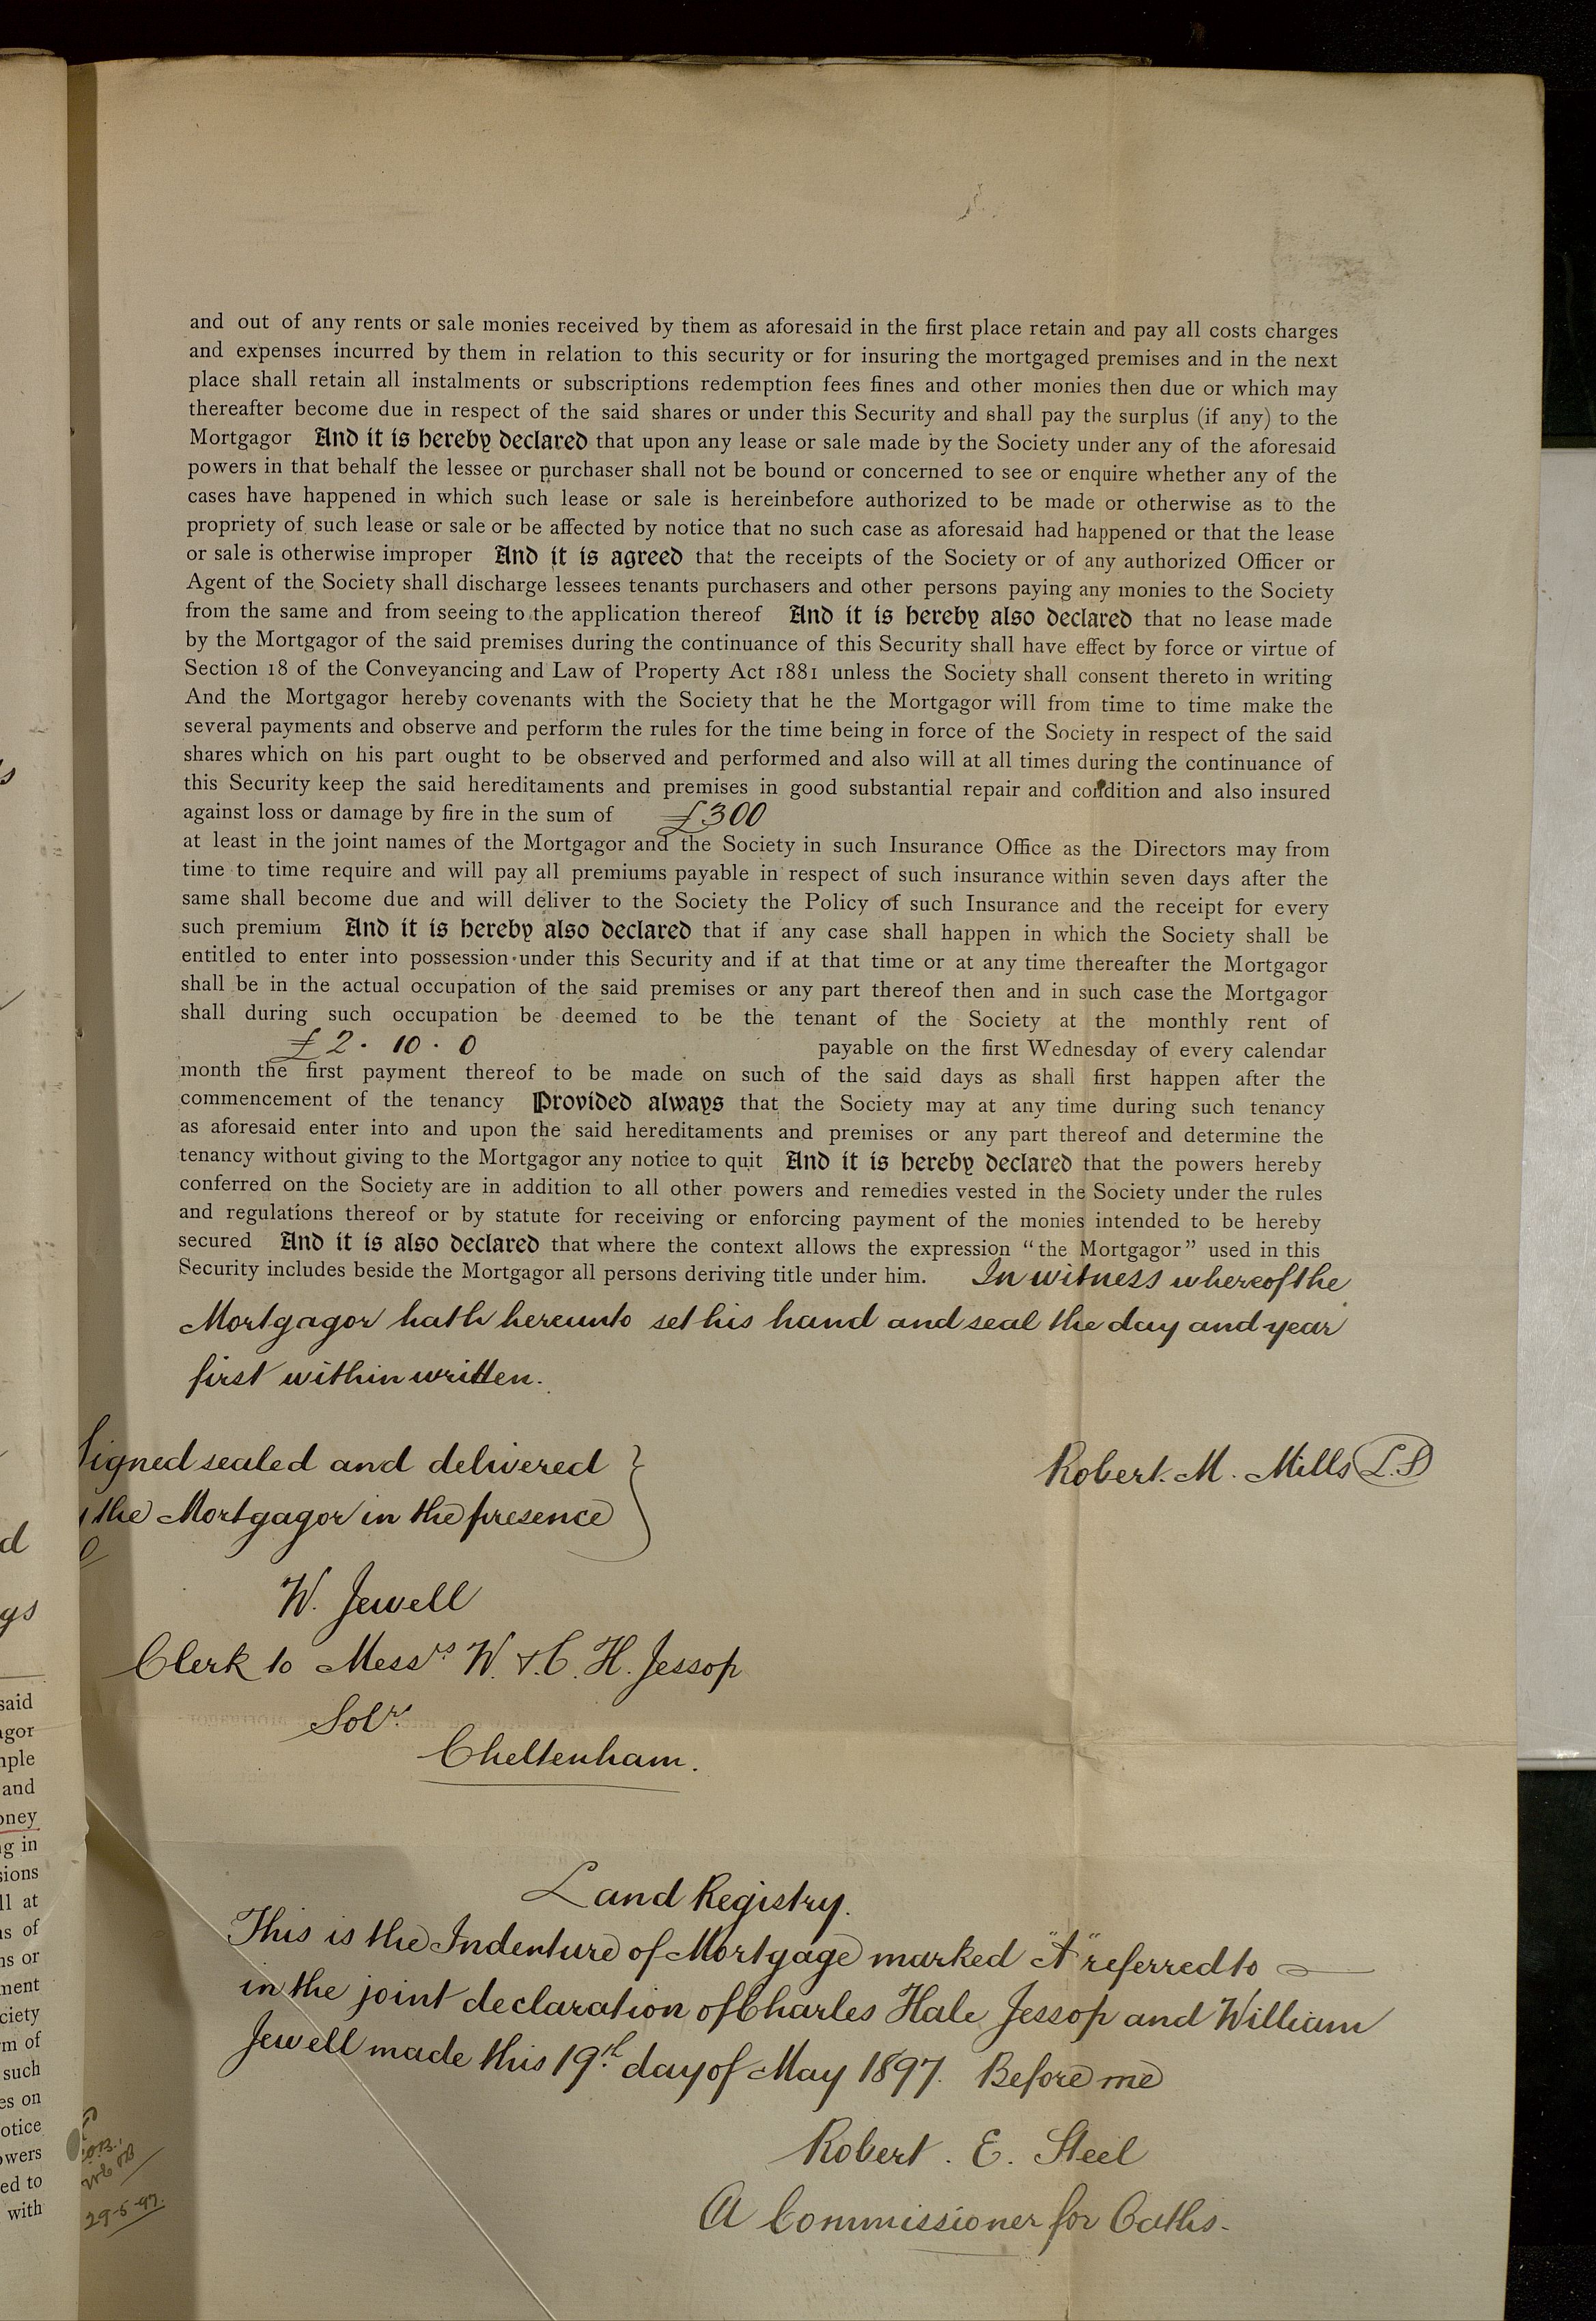 and out of any rents or sale monies received by them as aforesaid in the first place retain and pay all costs charges
and expenses incurred by them in relation to this security or for insuring the mortgaged premises and in the next
place shall retain all instalments or subscriptions redemption fees fines and other monies then due or which may
thereafter become due in respect of the said shares or under this Security and shall pay the surplus (if any) to the
Mortgagor And it is hereby declared that upon any lease or sale made by the Society under any of the aforesaid
powers in that behalf the lessee or purchaser shall not be bound or concerned to see or enquire whether any of the
cases have happened in which such lease or sale is hereinbefore authorized to be made or otherwise as to the
propriety of such lease or sale or be affected by notice that no such case as aforesaid had happened or that the lease
or sale is otherwise improper And it is agreed that the receipts of the Society or of any authorized Officer or
Agent of the Society shall discharge lessees tenants purchasers and other persons paying any monies to the Society
from the same and from seeing to the application thereof And it is hereby also declared that no lease made
by the Mortgagor of the said premises during the continuance of this Security shall have effect by force or virtue of
Section 18 of the Conveyancing and Law of Property Act 1881 unless the Society shall consent thereto in writing
And the Mortgagor hereby covenants with the Society that he the Mortgagor will from time to time make the
several payments and observe and perform the rules for the time being in force of the Society in respect of the said
shares which on his part ought to be observed and performed and also will at all times during the continuance of
this Security keep the said hereditaments and premises in good substantial repair and condition and also insured
against loss or damage by fire in the sum of £300
at least in the joint names of the Mortgagor and the Society in such Insurance Office as the Directors may from
time to time require and will pay all premiums payable in respect of such insurance within seven days after the
same shall become due and will deliver to the Society the Policy of such Insurance and the receipt for every
such premium And it is hereby also declared that if any case shall happen in which the Society shall be
entitled to enter into possession under this Security and if at that time or at any time thereafter the Mortgagor
shall be in the actual occupation of the said premises or any part thereof then and in such case the Mortgagor
shall during such occupation be deemed to be the tenant of the Society at the monthly rent of
£2 . 10 . 0 payable on the first Wednesday of every calendar
month the first payment thereof to be made on such of the said days as shall first happen after the
commencement of the tenancy Provided always that the Society may at any time during such tenancy
as aforesaid enter into and upon the said hereditaments and premises or any part thereof and determine the
tenancy without giving to the Mortgagor any notice to quit And it is hereby declared that the powers hereby
conferred on the Society are in addition to all other powers and remedies vested in the Society under the rules
and regulations thereof or by statute for receiving or enforcing payment of the monies intended to be hereby
secured And it is also declared that where the context allows the expression "the Mortgagor" used in this
Security includes beside the Mortgagor all persons deriving title under him. In witness whereof the
Mortgagor hath hereunto set his hand and seal the day and year
first within written.
Signed sealed and delivered
the Mortgagor in the presence
Robert. M. Mills L.S
W. Jewell
Clerk to Messrs. W. & C. H. Jessop
Solrs.
Cheltenham.
Land Registry.
This is the Indenture of Mortgage marked "A" referred to
in the joint declaration of Charles Hale Jessop and William
Jewell made this 19th. day of May 1897. Before me
Robert. E. Steel
A Commissioner for Oaths.
29-5-97.
said
and
sions
ciety
such
with